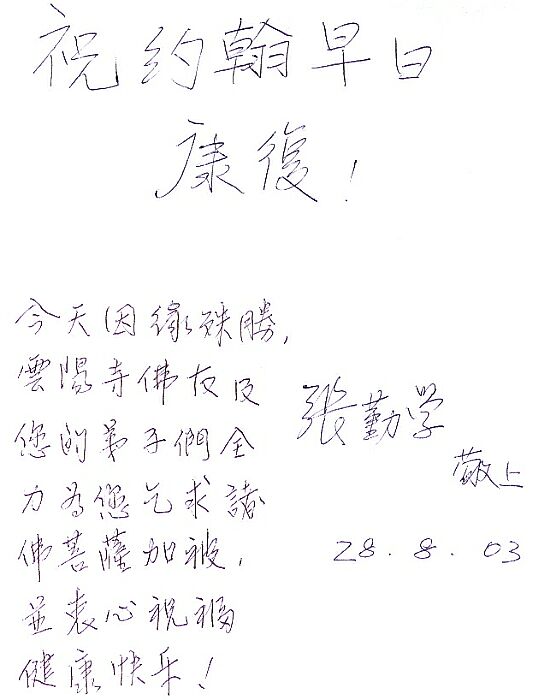 祝约翰早日
康復!
今天因緣殊勝,
雲陽寺佛友及
您的弟子們全
力為您乞求諸
佛菩薩加被,
並衷心祝福
健康快乐!
張勤学
敬上
28.8.03